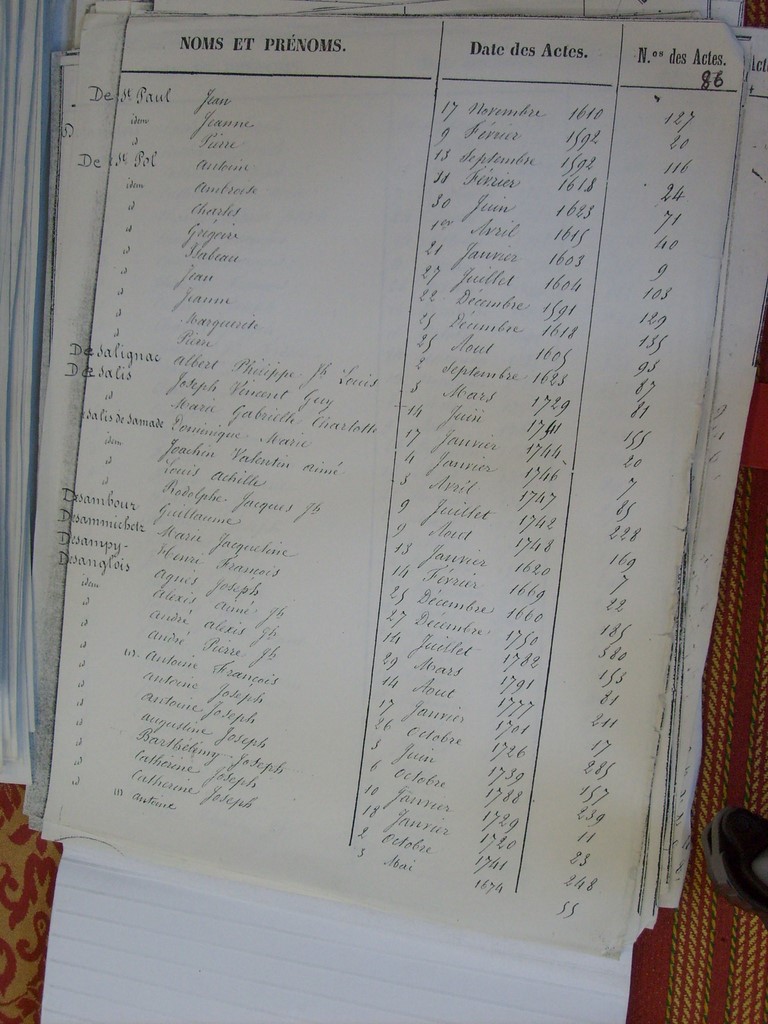 NOMS ET PRÉNOMS. Date des Actes. N.os des Actes.
86
De St Paul Jean 17 Novembre 1610 127
idem Jeanne 9 Février 1592 20
id Pierre 13 Septembre 1592 116
De St Pol Antoine Février 1618 24
idem Ambroise 30 Juin 1623 71
id Charles 1er Avril 1615 40
id Grégoire 21 Janvier 1603 9
id Isabeau 27 Juillet 1604 103
id Jean 22 Décembre 1591 129
id Jeanne 25 Décembre 1618 135
id Marguerite 25 Aout 1605 93
id Pierre 2 Septembre 1623 87
Desalignac Albert Philippe Jh Louis 3 Mars 1729 81
Desalis Joseph Vincent Guy 14 Juin 1741 155
id Marie Gabrielle Charlotte 17 Janvier 1744 20
salis de Samade Dominique Marie 4 Janvier 1746 7
idem Joachin Valentin aimé 3 Avril 1747 85
id Louis achille 9 Juillet 1742 228
id Rodolphe Jacques Jh 9 Aout 1748 169
Desambour Guillaume 13 Janvier 1620 7
Desammichetz Marie Jacqueline 14 Février 1669 22
Desampy Henri François 25 Décembre 1660 185
Desanglois Agnès Joseph 27 Décembre 1750 380
idem alexis aimé jh 14 Juillet 1782 153
id andré alexis jh 29 Mars 1791 81
id andré Pierre jh 14 Aout 1777 211
id (1) Antoine François 17 Janvier 1701 17
id antoine Joseph 26 octobre 1726 285
id Antoine Joseph 3 Juin 1739 157
id augustine Joseph 6 octobre 1788 239
id Barthélémy Joseph 10 Janvier 1729 11
id Catherine Joseph 18 Janvier 1720 23
id Catherine Joseph 2 octobre 1741 248
id (1) antoine 3 Mai 1674 55